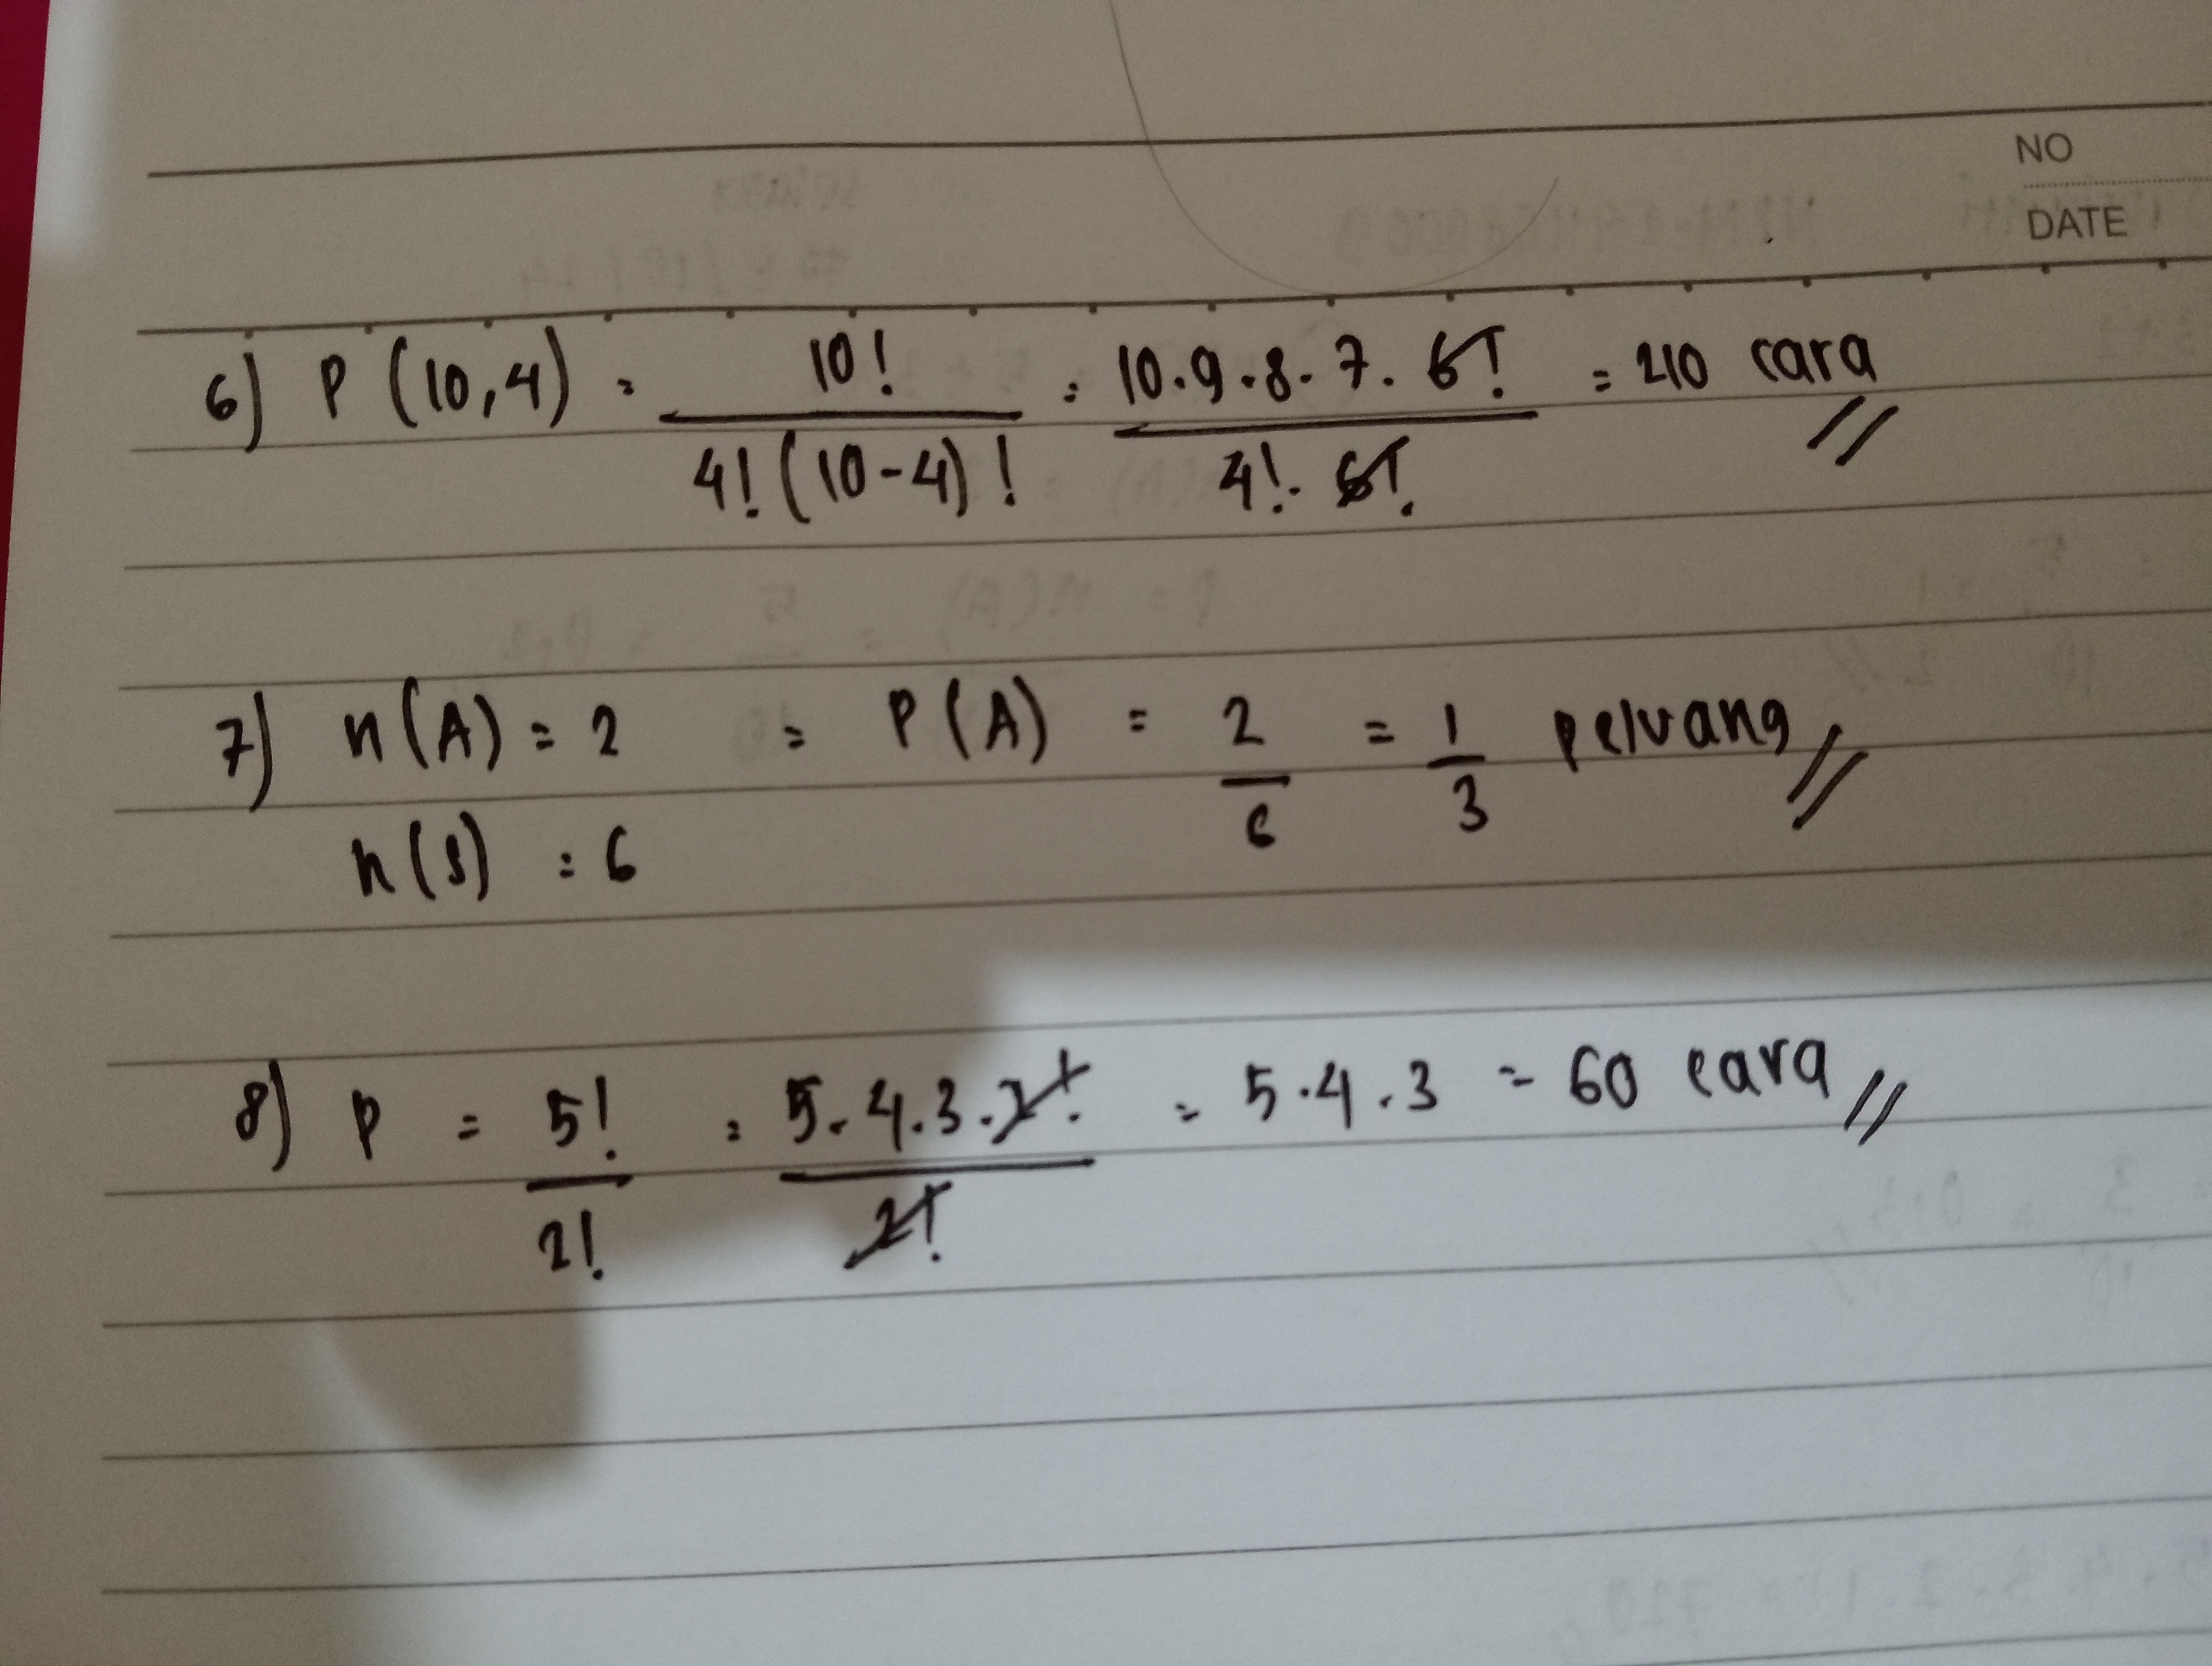 NO
DATE
6) P (10,4) = 10! / 4! (10-4)! = 10.9.8.7.6! / 4!.6! = 210 cara //
7) n(A) = 2 = P(A) = 2/6 = 1/3 peluang //
n(s) = 6
8) P = 5! / 2! = 5.4.3.2! / 2! = 5.4.3 = 60 cara //